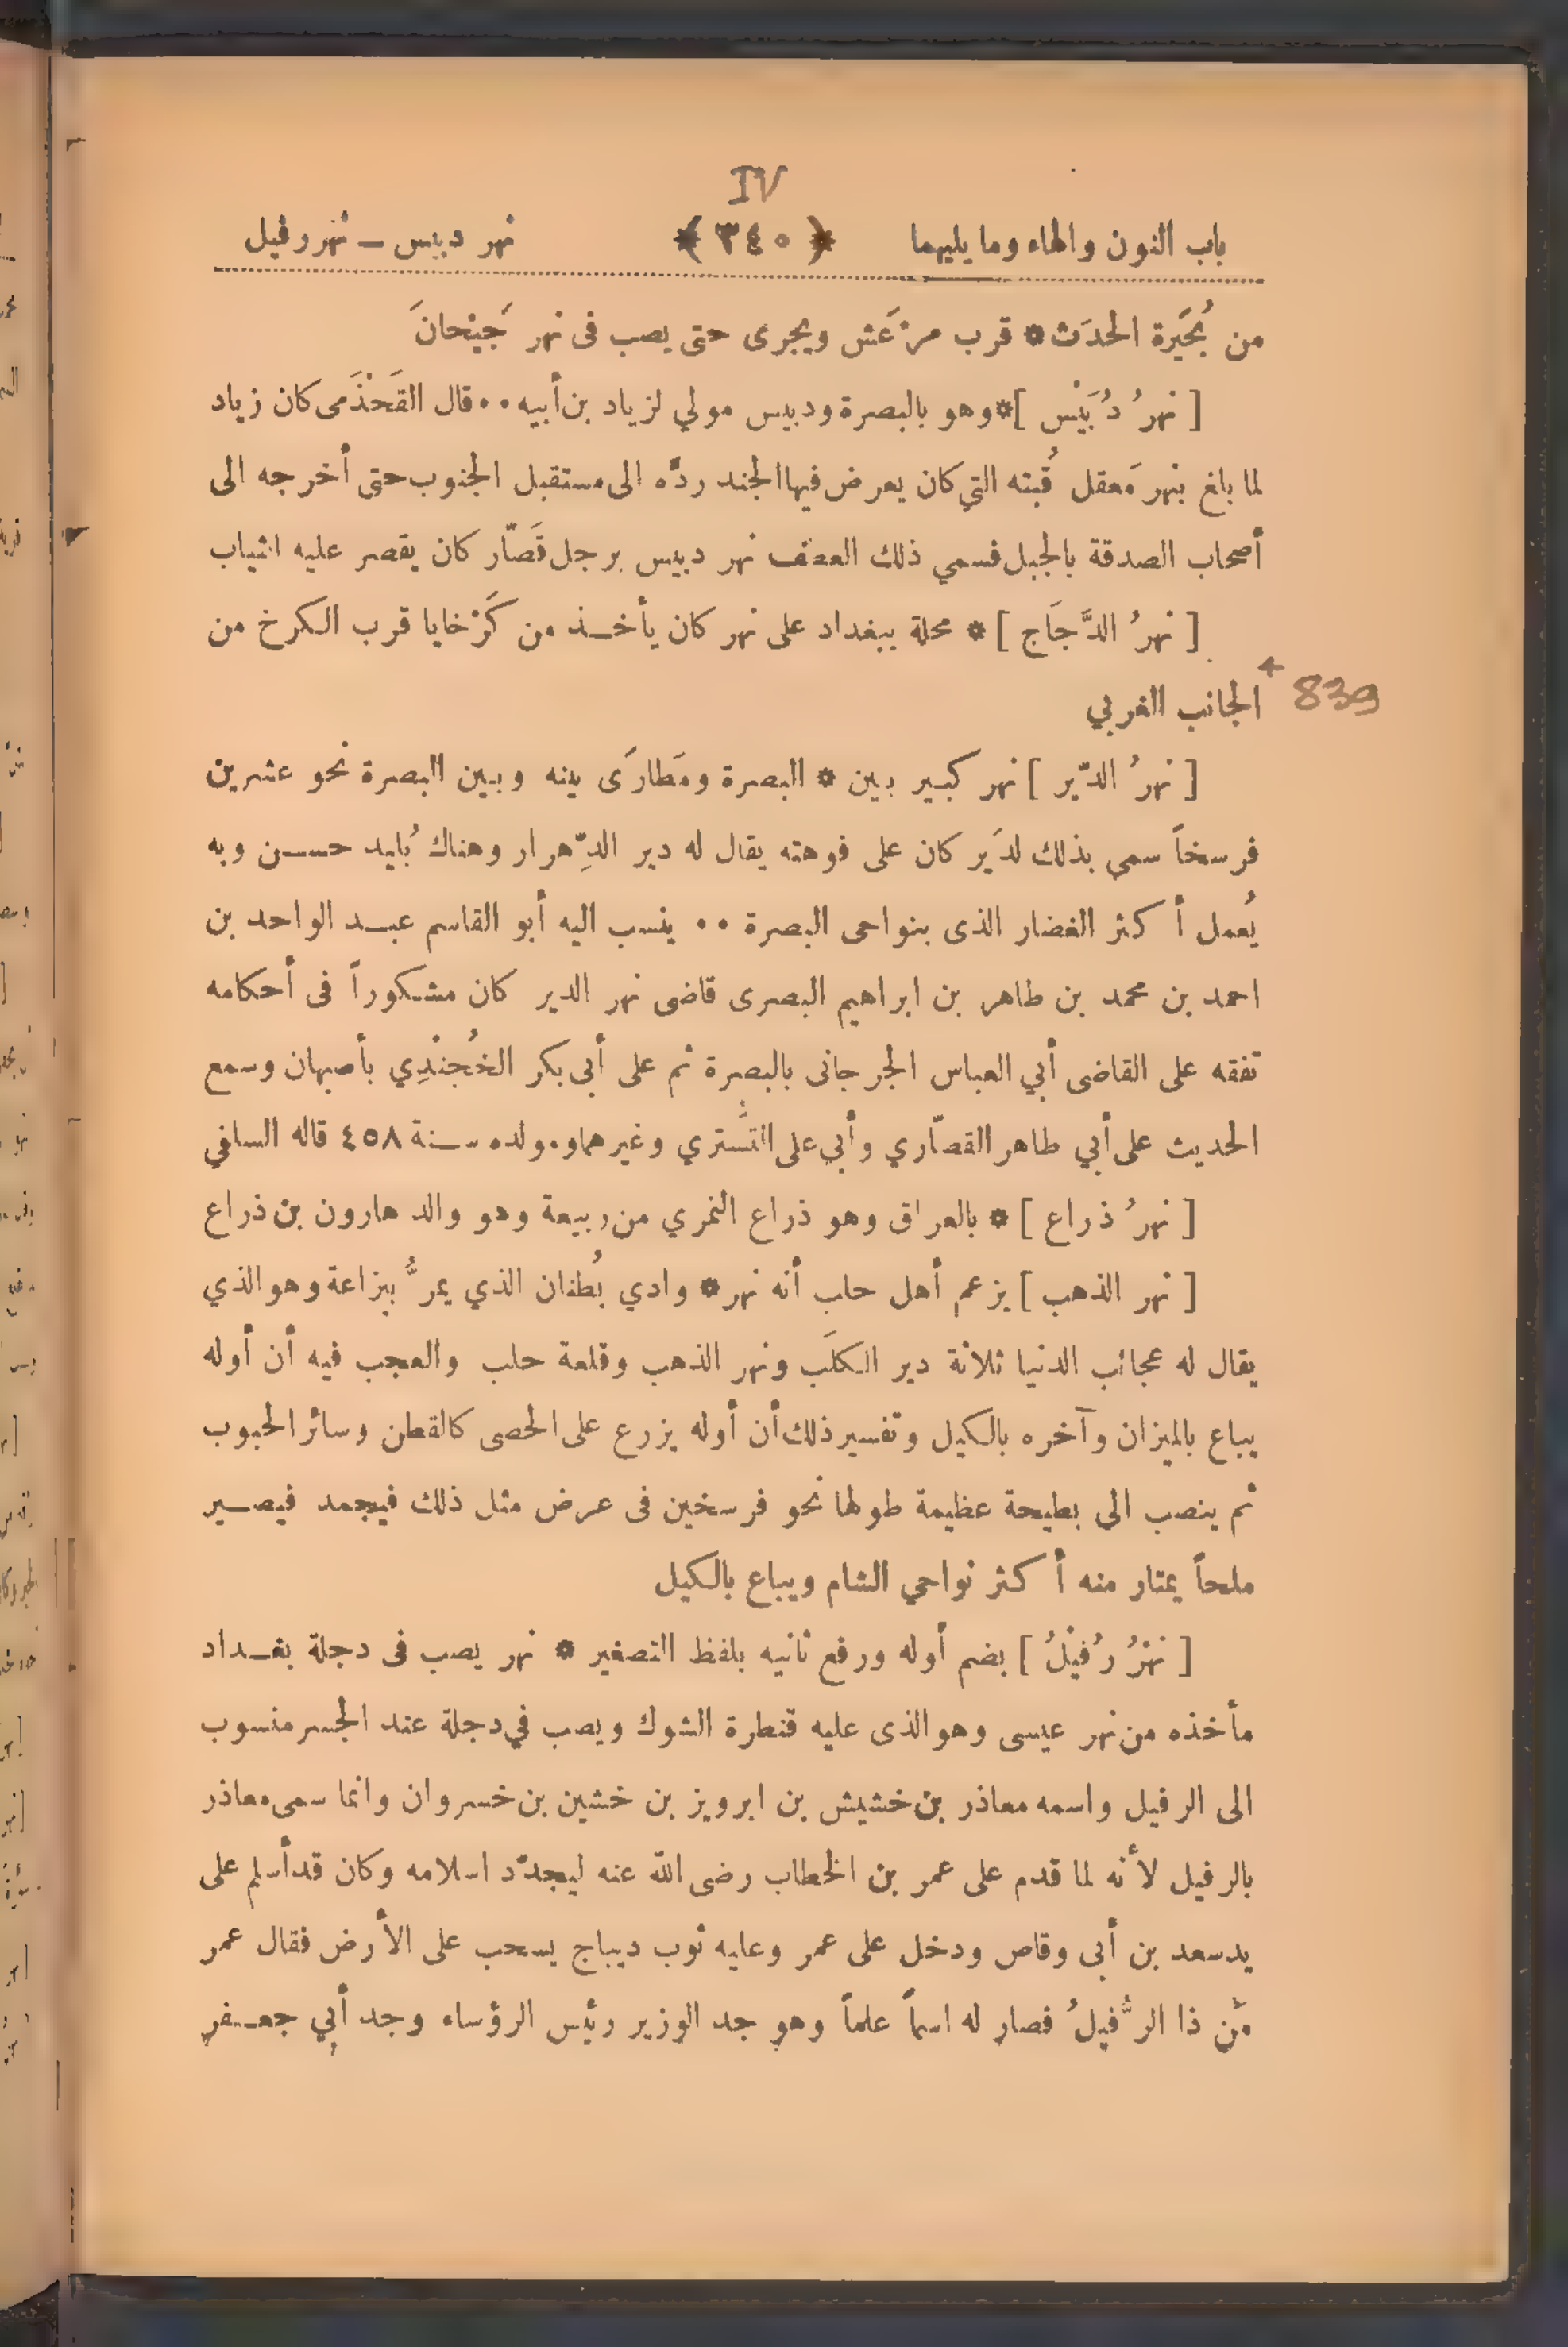 IV
باب النون والهاء وما يليهما ﴿ ٣٤٠ ﴾ نهر دبيس – نهر رفيل
من بُحَيرة الحدَث * قرب مرْعَش ويجرى حتى يصب فى نهر جَيْحانَ
[ نهرُ دُبَيْس ] * وهو بالبصرة ودبيس مولي لزياد بن أبيه ٠٠ قال القَحْذَمى كان زياد
لما بلغ بنهر مَعقل قُبته التي كان يعرض فيها الجند ردَّه الى مستقبل الجنوب حتى أخرجه الى
أصحاب الصدقة بالجبل فسمي ذلك العطف نهر دبيس برجل قَصّار كان يقصر عليه الثياب
[ نهرُ الدَّجَاج ] * محلة ببغداد على نهر كان يأخــذ من كَرْخايا قرب الكرخ من
الجانب الغربي
839
[ نهرُ الدّير ] نهر كبير بين * البصرة ومَطارَى بينه وبين البصرة نحو عشرين
فرسخاً سمي بذلك لدَير كان على فوهته يقال له دير الدِّهرار وهناك بُليد حسن وبه
يُعمل أكثر الغضار الذى بنواحى البصرة ٠٠ ينسب اليه أبو القاسم عبد الواحد بن
احمد بن محمد بن طاهر بن ابراهيم البصرى قاضى نهر الدير كان مشكوراً فى أحكامه
تفقه على القاضى أبي العباس الجرجانى بالبصرة ثم على أبى بكر الخُجَنْدِي بأصبهان وسمع
الحديث على أبي طاهر القصّاري وأبي على التُّستري وغيرهما ومولده سنة ٤٥٨ قاله السلفي
[ نهرُ ذراع ] * بالعراق وهو ذراع النمري من ربيعة وهو والد هارون بن ذراع
[ نهر الذهب ] يزعم أهل حلب أنه نهر * وادي بُطنان الذي يمرُّ ببزاعة وهو الذي
يقال له عجائب الدنيا ثلاثة دير الكلَب ونهر الذهب وقلعة حلب والعجب فيه أن أوله
يباع بالميزان وآخره بالكيل وتفسير ذلك أن أوله يزرع على الحصى كالقطن وسائر الحبوب
ثم ينصب الى بطيحة عظيمة طولها نحو فرسخين فى عرض مثل ذلك فيجمد فيصير
ملحاً يمتار منه أكثر نواحي الشام ويباع بالكيل
[ نهْرُ رُفَيْلُ ] بضم أوله ورفع ثانيه بلفظ التصغير * نهر يصب فى دجلة بغداد
مأخذه من نهر عيسى وهو الذى عليه قنطرة الشوك ويصب في دجلة عند الجسر منسوب
الى الرفيل واسمه معاذر بن خشيش بن ابرويز بن خشين بن خسروان وانما سمى معاذر
بالرفيل لأنه لما قدم على عمر بن الخطاب رضى الله عنه ليجدّد اسلامه وكان قد أسلم على
يد سعد بن أبى وقاص ودخل على عمر وعليه ثوب ديباج يسحب على الأرض فقال عمر
مَن ذا الرُّفيلُ فصار له اسماً علماً وهو جد الوزير رئيس الرؤساء وجد أبي جعفر